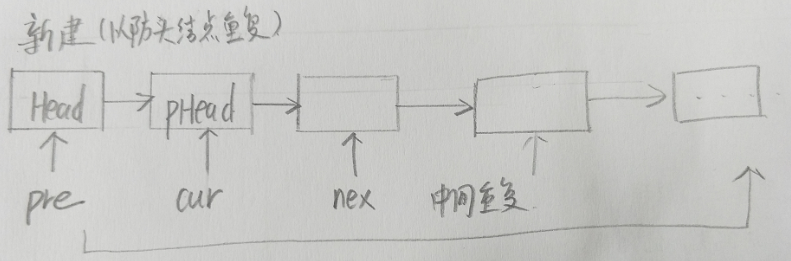 新建(以防头结点重复)
Head pHead ...
pre cur nex 中间重复